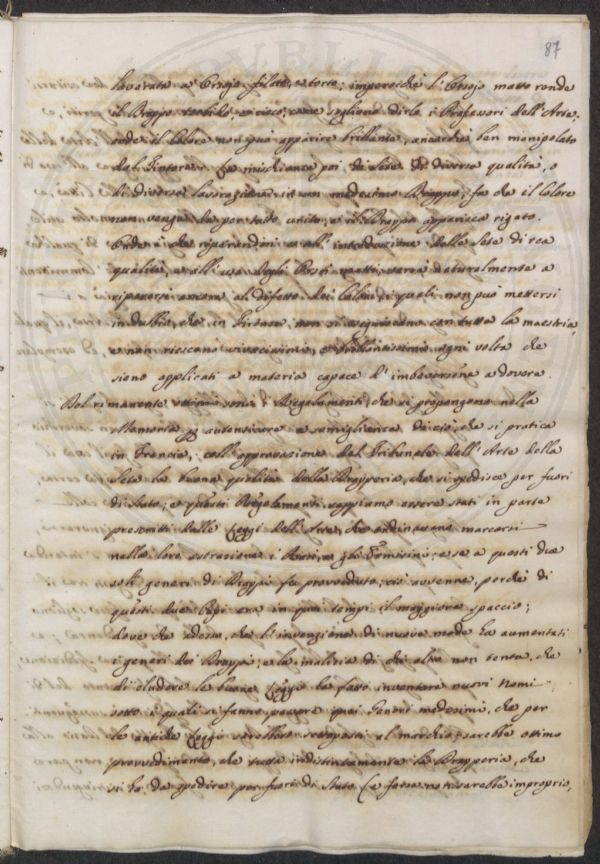 87
lavorata a Orsojo filato, e torto; imperocchè l'Orsojo matto rende
il Drappo torbido, e vizioso, come sogliono dirlo i Professori dell'Arte;
onde il Colore non può apparire brillante, ancorchè ben manipolato
dal Tintore. La mischianza poi di Sete di diversa qualità, o
di diversa lavorazione in un medesimo Drappo, fa che il Colore
non venga da per tutto unito, e il Drappo apparisca rigato.
Onde che riparandosi all'introduzione delle Sete di rea
qualità, e all'uso degli Orsoj matti, verrà naturalmente a
ripararsi ancora al difetto dei Colori, i quali non può mettersi
in dubbio, che in Firenze non si eseguiscano con tutta la maestria,
e non riescano vivacissimi, e brillantissimi ogni volta che
sieno applicati a materia capace d'imbeversene a dovere.
Del rimanente ottimi sono i Regolamenti, che si propongono nella
Memoria per autenticare a somiglianza di ciò, che si pratica
in Francia, coll'approvazione del Tribunale dell'Arte della
Seta la buona qualità della Drapperia, che si spedisce per fuori
di Stato; e questi Regolamenti sappiamo essere stati in parte
prescritti dalle Leggi dell'Arte, che ordinavano marcarsi
nella loro estrazione i Rasi, e gli Ermisini; e se a questi due
soli generi di Drappi fu provveduto, ciò avvenne, perchè di
questi due Capi era in quei tempi il maggiore spaccio;
dove che adesso, che l'invenzione di nuove mode ha aumentati
i generi dei Drappi, e la malizia di chi altro non tenta, che
di eludere le buone Leggi ha fatto inventare nuovi Nomi
sotto i quali si fanno passare quei Generi medesimi, che per
le antiche Leggi sarebbero sottoposti al marchio, sarebbe ottimo
provvedimento, che tutta indistintamente la Drapperia, che
si ha da spedire per fuori di Stato (e forse non sarebbe improprio,